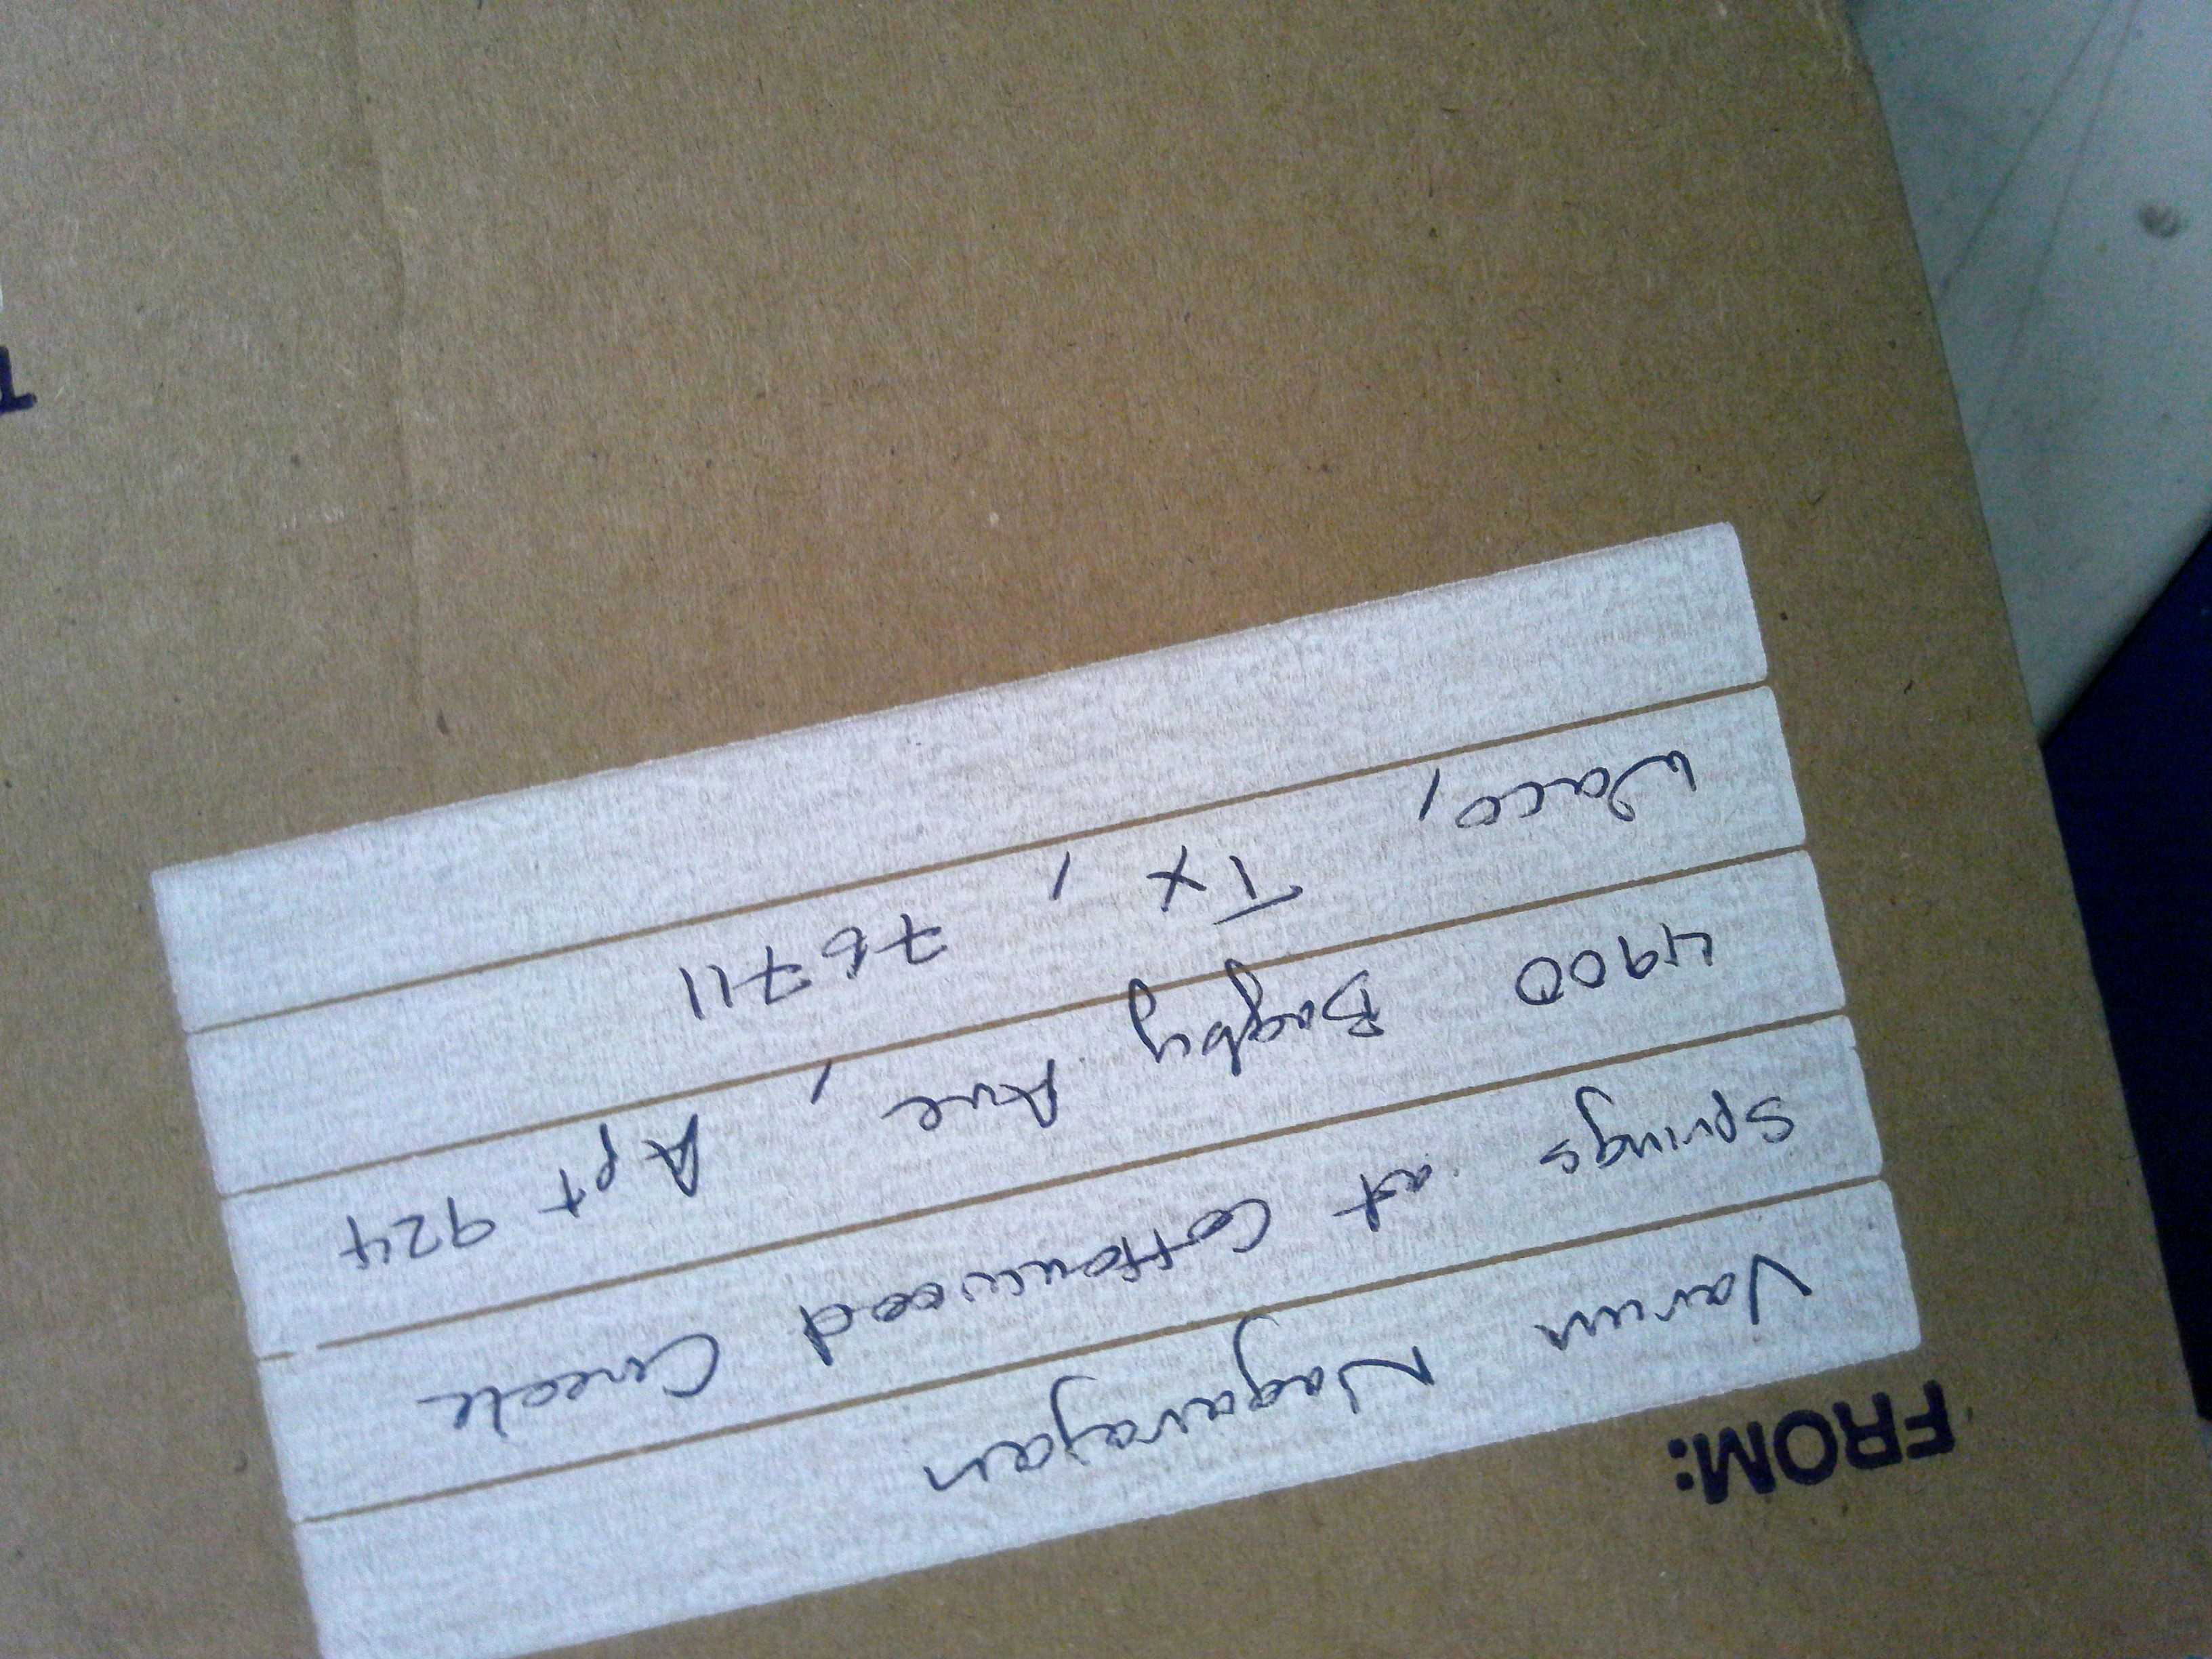 FROM:
Varun Nagarajan
Springs at Cottonwood Creek
4900 Bagby Ave, Apt 924
Waco, Tx, 76711
T